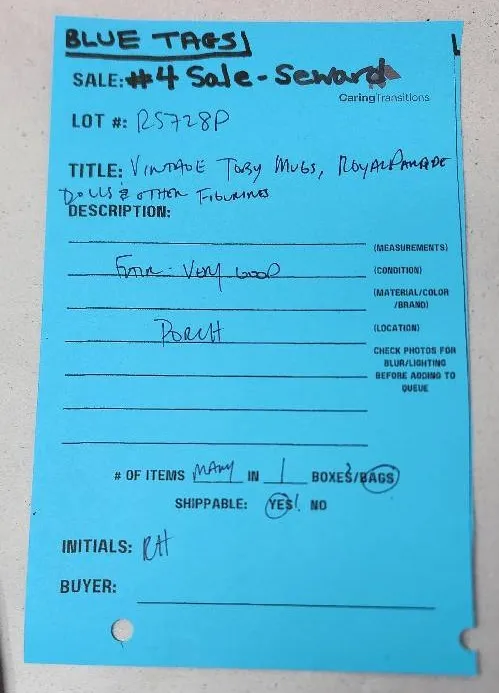 BLUE TAGS
SALE: #4 Sale - Seward
CaringTransitions
LOT #: RS728P
TITLE: VINTAGE TOBY MUGS, ROYAL PARADE
DOLLS & OTHER FIGURINES
DESCRIPTION:
(MEASUREMENTS)
FAIR - VERY GOOD (CONDITION)
(MATERIAL/COLOR
/BRAND)
PORCH (LOCATION)
CHECK PHOTOS FOR
BLUR/LIGHTING
BEFORE ADDING TO
QUEUE
# OF ITEMS MANY IN 1 BOXES/BAGS
SHIPPABLE: YES! NO
INITIALS: RH
BUYER: